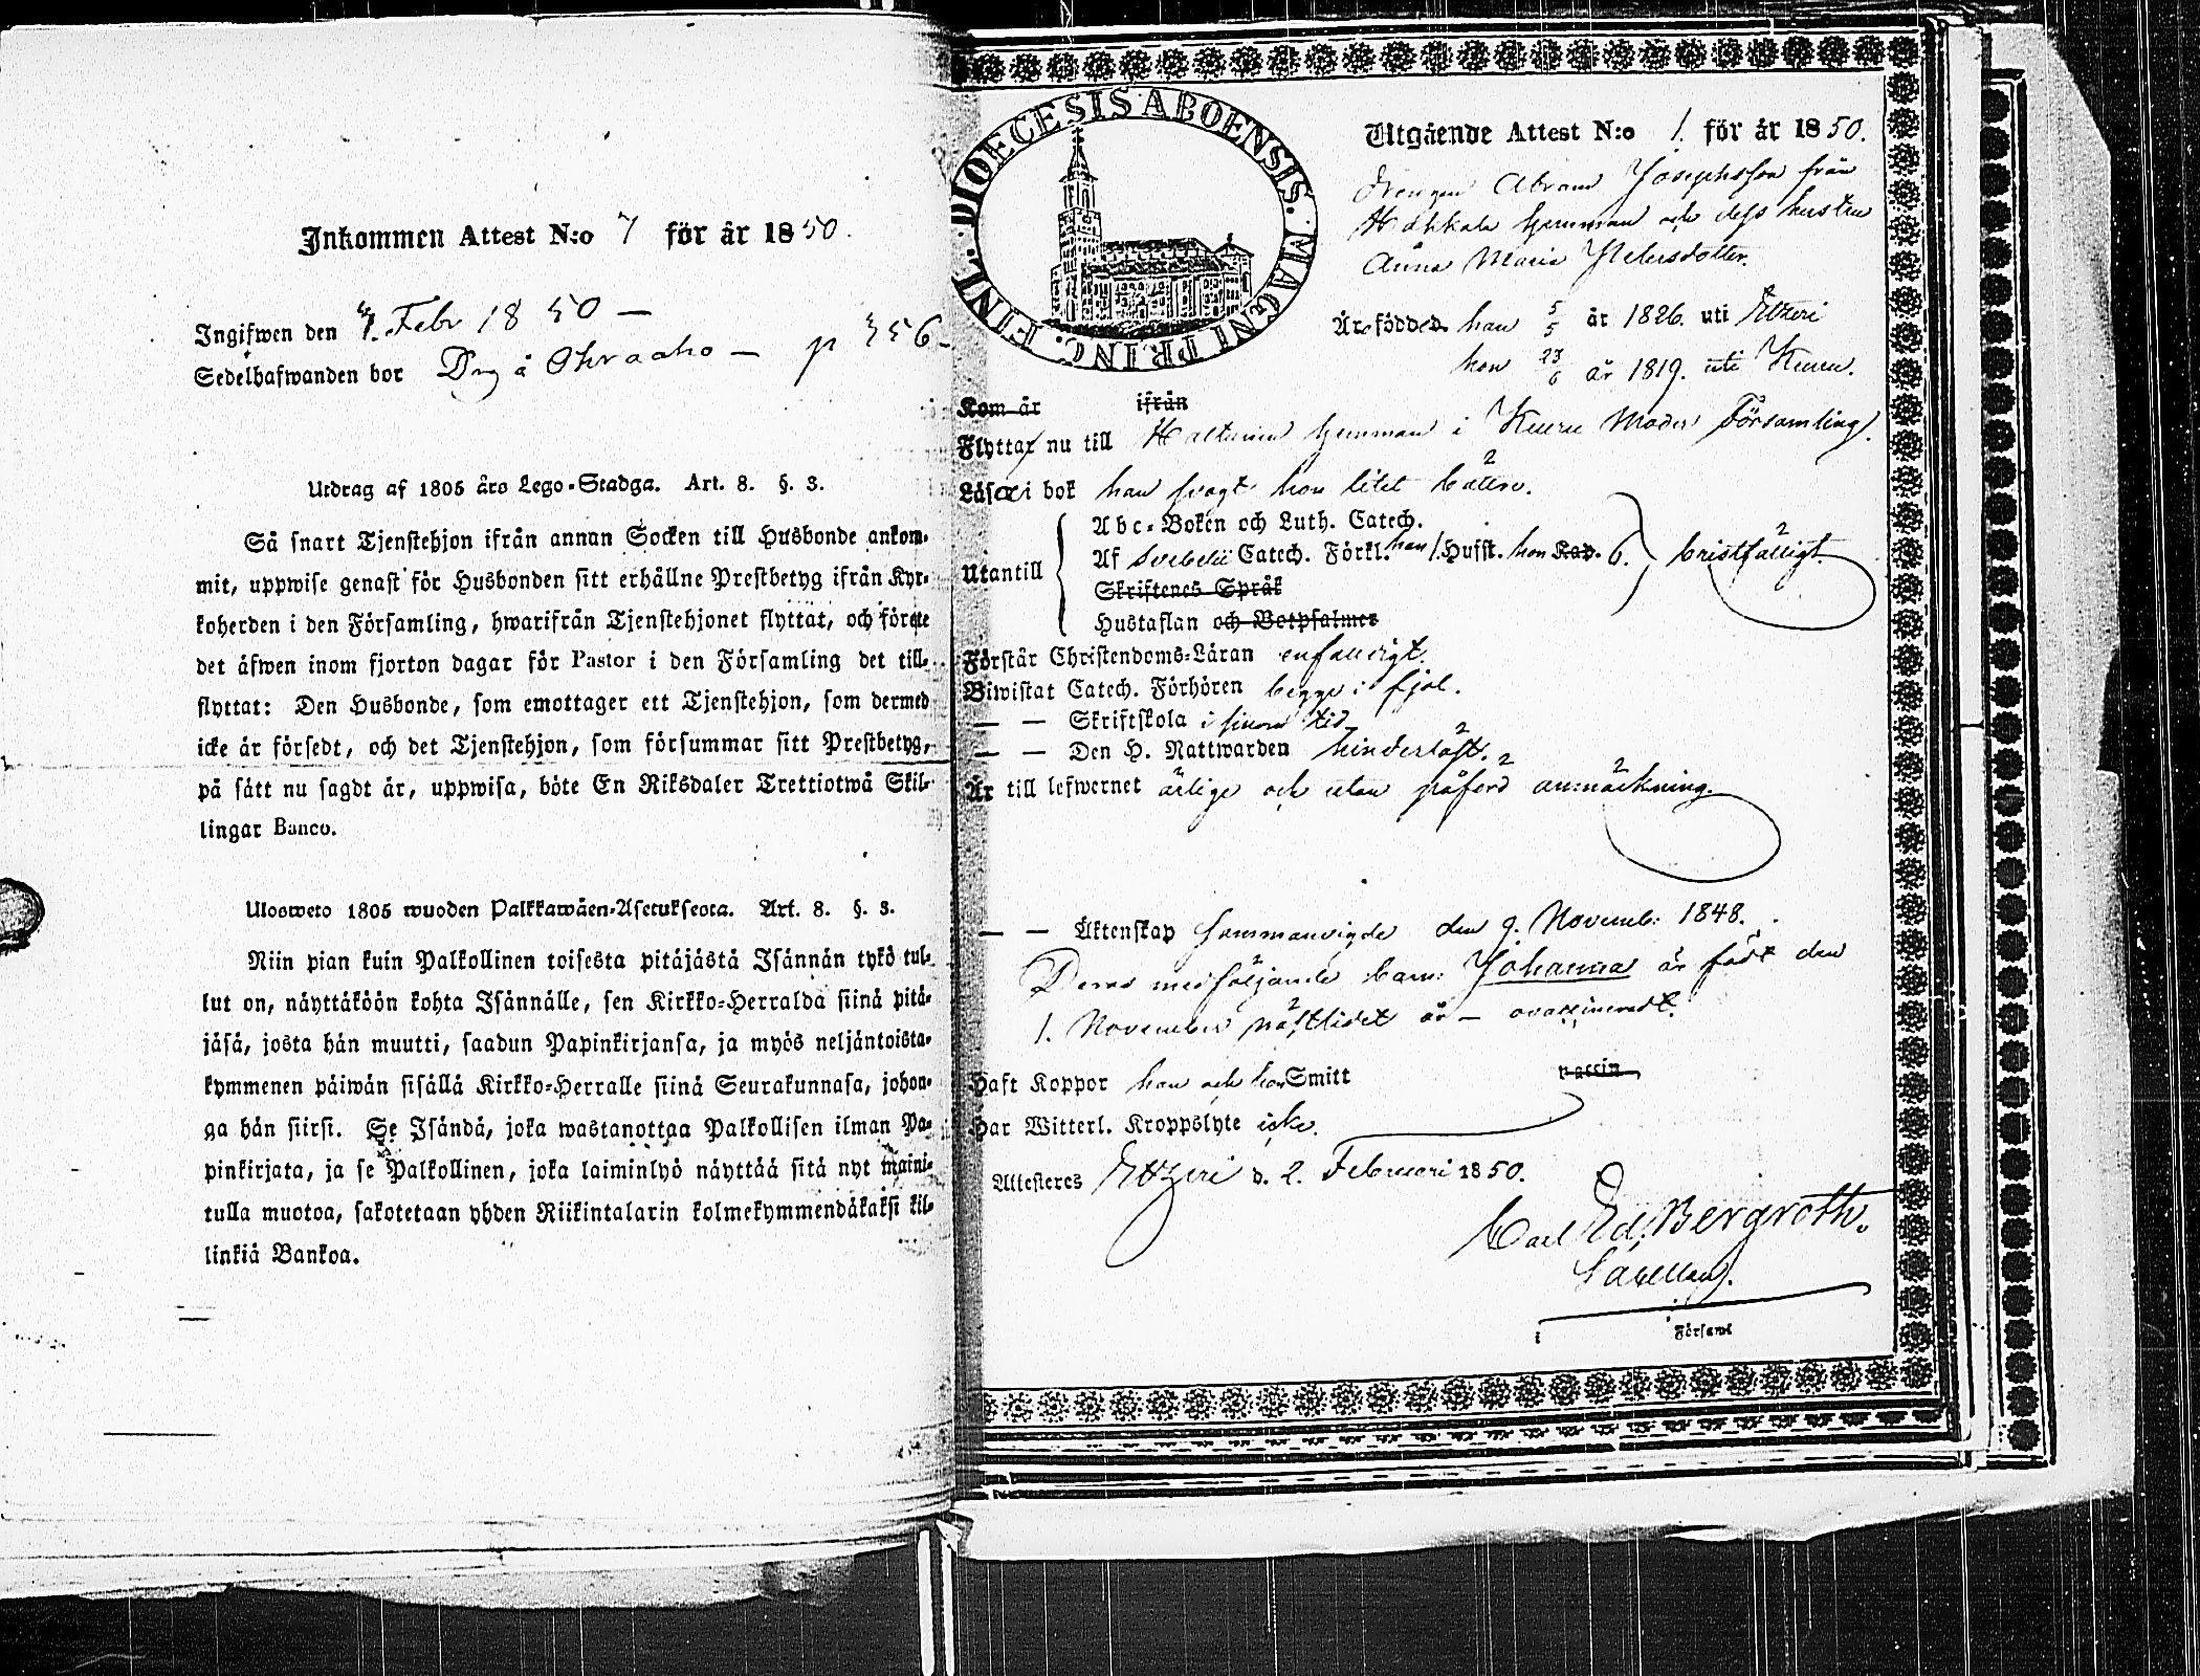 Inkommen Attest N:o 7 för år 1850.
Ingifwen den 7. Febr 1850 —
Sedelhafwanden bor Drg å Ohraaho — p 356
Utdrag af 1805 års Lego-Stadga. Art. 8. §. 3.
Så snart Tjenstehjon ifrån annan Socken till Husbonde ankom-
mit, uppwise genast för Husbonden sitt erhållne Prestbetyg ifrån Kyr-
koherden i den Församling, hwarifrån Tjenstehjonet flyttat, och förete
det äfwen inom fjorton dagar för Pastor i den Församling det till-
flyttat: Den Husbonde, som emottager ett Tjenstehjon, som dermed
icke är försedt, och det Tjenstehjon, som försummar sitt Prestbetyg,
på sätt nu sagdt är, uppwisa, böte En Riksdaler Trettiotwå Skil-
lingar Banco.
Ulosweto 1805 wuoden Palkkawäen-Asetuksesta. Art. 8. §. 3.
Niin pian kuin Palkollinen toisesta pitäjästä Isännän tykö tul-
lut on, näyttäköön kohta Isännälle, sen Kirkko-Herralda siinä pitä-
jäsä, josta hän muutti, saadun Papinkirjansa, ja myös neljäntoista-
kymmenen päiwän sisällä Kirkko-Herralle siinä Seurakunnasa, johon-
ga hän siirsi. Se Isändä, joka wastanottaa Palkollisen ilman Pa-
pinkirjata, ja se Palkollinen, joka laiminlyö näyttää sitä nyt maini-
tulla muotoa, sakotetaan yhden Riikintalarin kolmekymmendäkaksi kil-
linkiä Bankoa.
DIOECESIS ABOENSIS. MAGNI PRINC. FINL.
Utgående Attest N:o 1. för år 1850.
Drengen Abram Josephsson från
Hahkala hemman och dess hustru
Anna Maria Petersdotter.
Är födde han 5/5 år 1826. uti Etzeri
hon 23/6 år 1819. uti Keuru.
Kom år ifrån
Flyttar nu till hemman i Keuru Moder Församling.
Läsa i bok han svagt hon litet bättre.
Utantill
Abc-Boken och Luth. Catech.
Af Svebelii Catech. Förkl. han 1. Hufst. hon Kap. 6. bristfälligt.
Skriftenes Språk
Hustaflan och Botpsalmer
Förstår Christendoms-Läran enfaldigt.
Biwistat Catech. Förhören begge i fjol.
— — Skriftskola i sinom tid
— — Den H. Nattwarden hinderlöst.
Är till lefwernet ärlige och utan påförd anmärkning.
— — Äktenskap Sammanvigde den 9. Novemb: 1848.
Deras medföljande barn: Johanna är född den
1. November nästlidet år — ovaccineradt.
Haft Koppor han och hon Smitt vaccin
Har Witterl. Kroppslyte icke.
Attesteres Etzeri d. 2. Februari 1850.
Carl Ed. Bergroth.
Sacellan.
i Församl